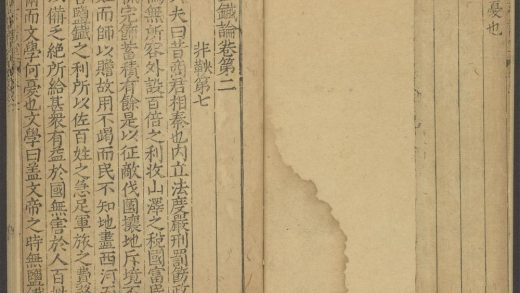 憂也
鐵論卷第二
非鞅第七
夫曰昔商君相秦也内立法度嚴刑罰飭政
爲無所容外設百倍之利收山澤之稅國富民
械完飾蓄積有餘是以征敵伐國攘地斥境不
而師以贍故用不竭而民不知地盡西河而
鹽鐵之利所以佐百姓之急足軍旅之費務
以備乏絕所給甚衆有益於國無害於人百姓
爾而文學何憂也文學曰蓋文帝之時無鹽鐵